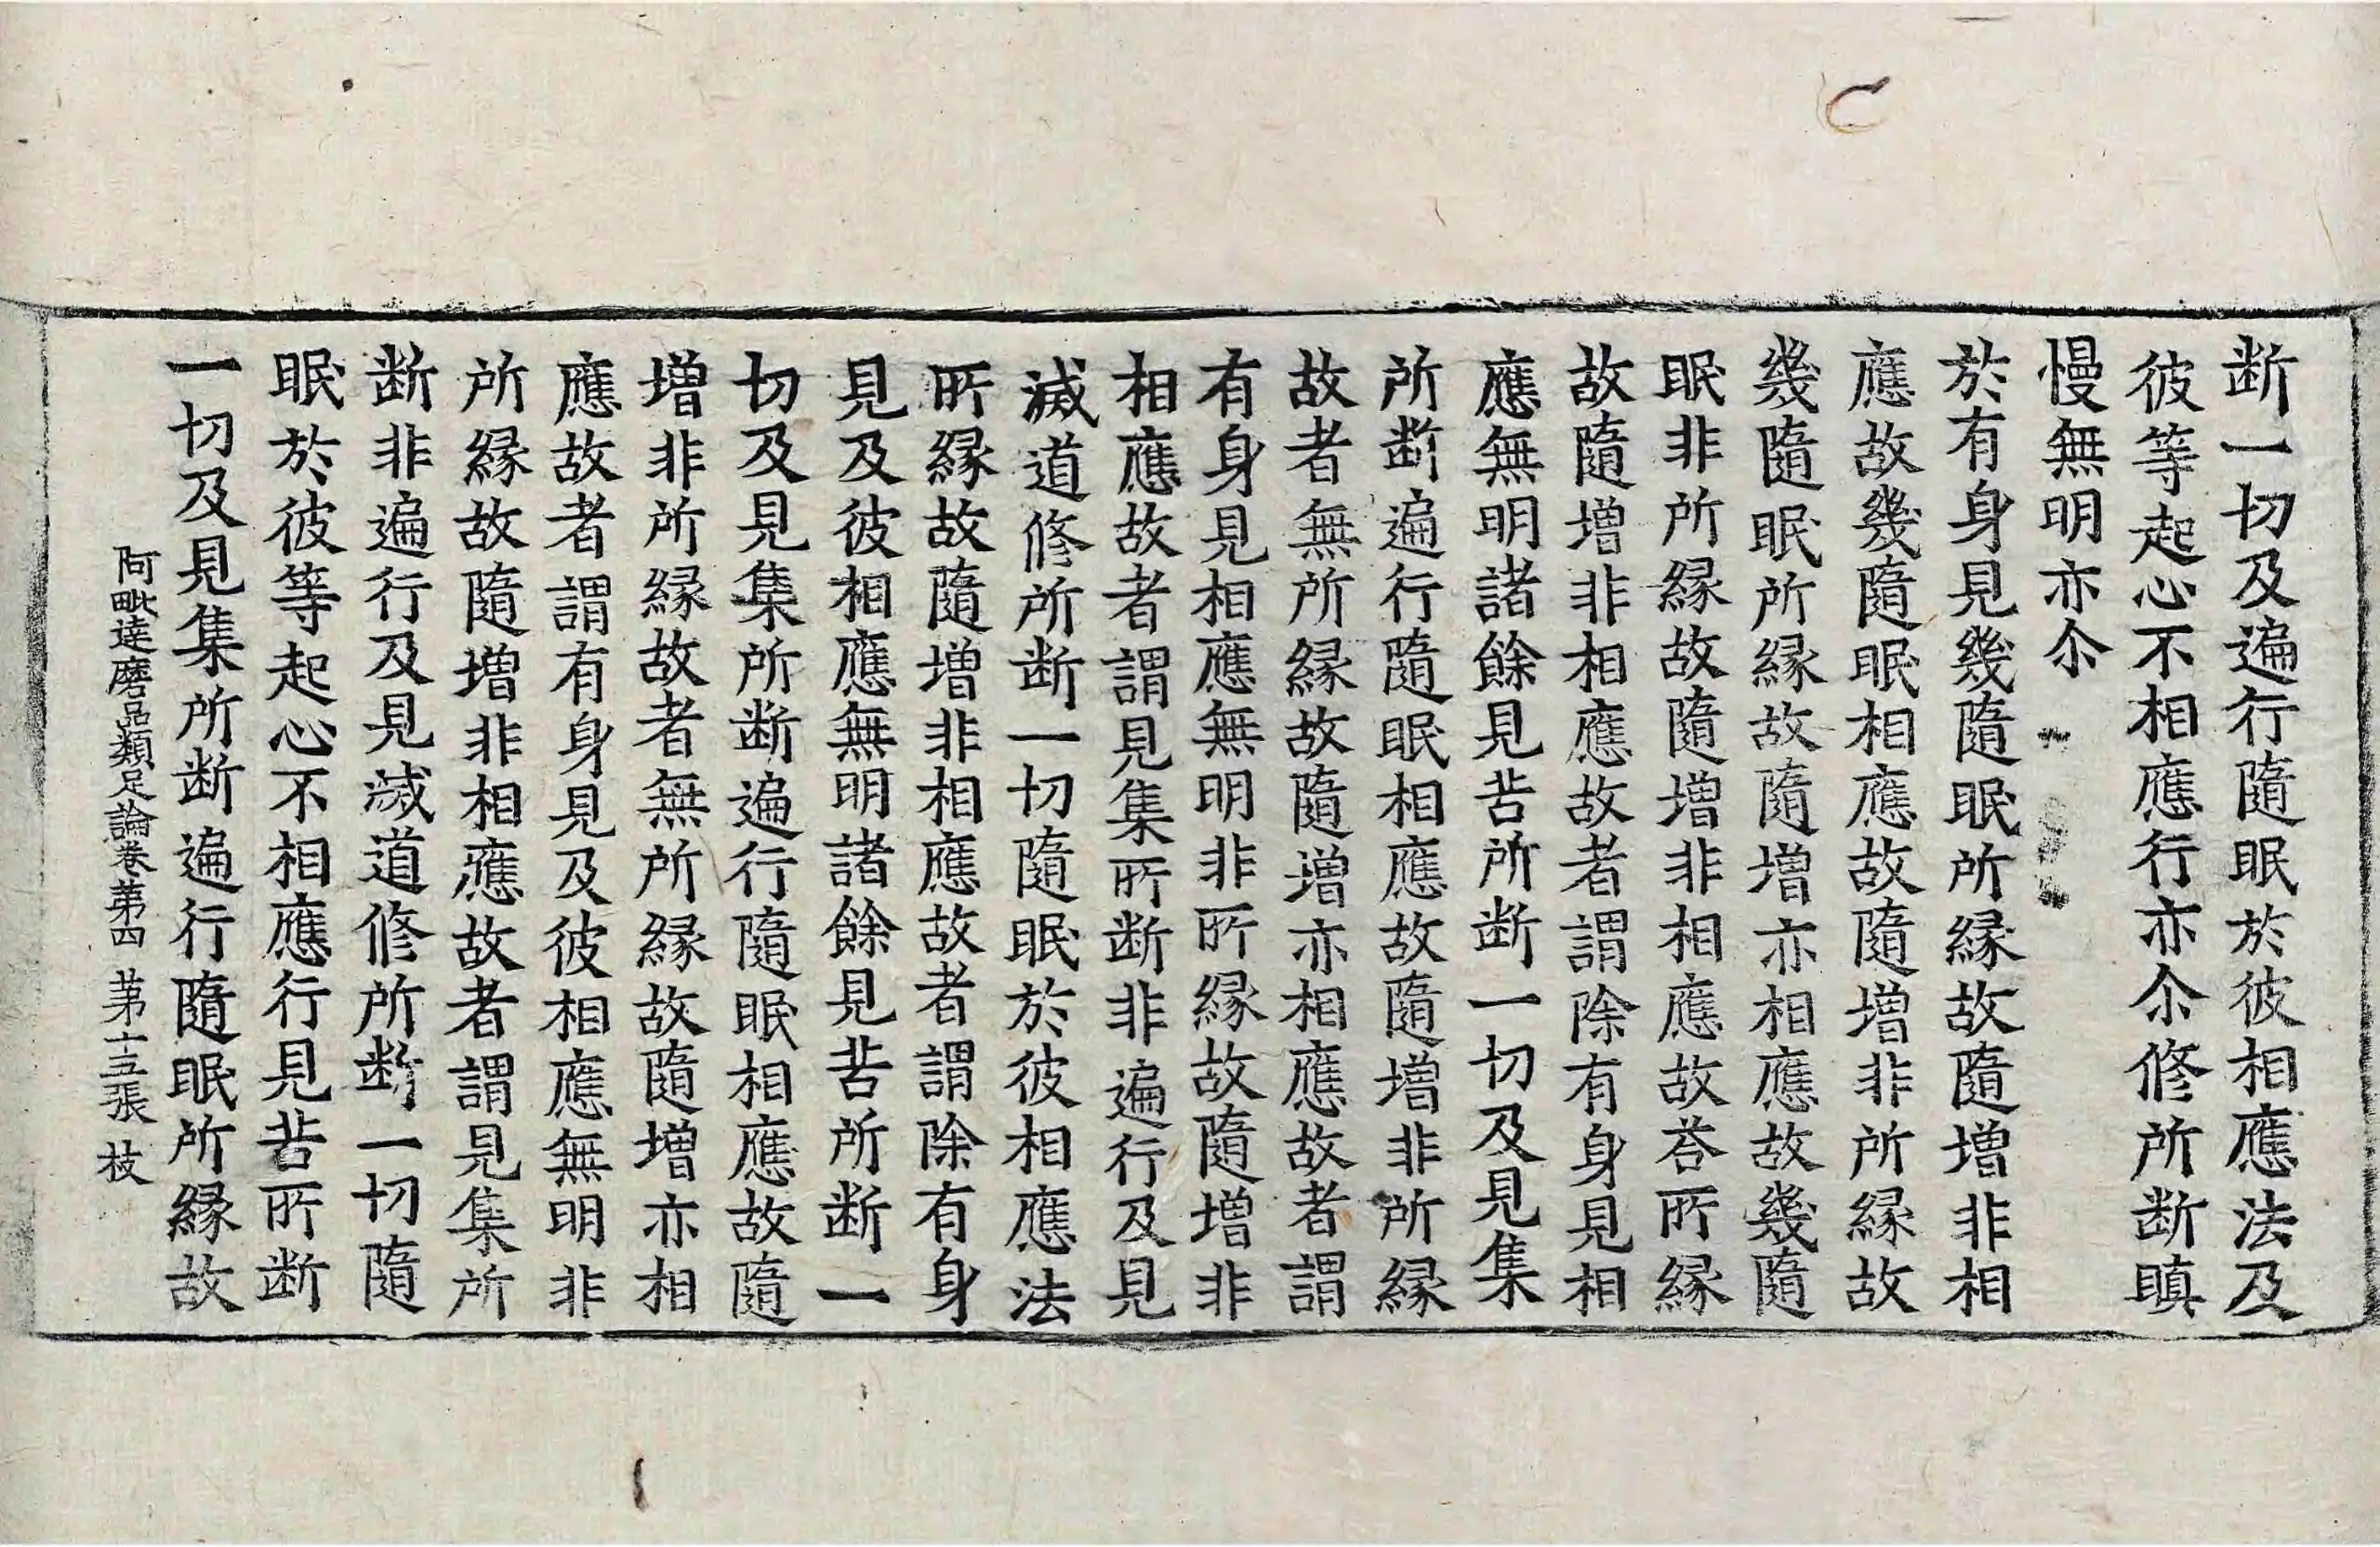 断一切及遍行隨眠於彼相應法及
彼等起心不相應行亦尒修所断瞋
慢無明亦尒
於有身見幾隨眠所縁故隨增非相
應故幾隨眠相應故隨增非所縁故
幾隨眠所縁故隨增亦相應故幾隨
眠非所縁故隨增非相應故荅所縁
故隨增非相應故者謂除有身見相
應無明諸餘見苦所断一切及見集
所断遍行隨眠相應故隨增非所縁
故者無所縁故隨增亦相應故者謂
有身見相應無明非所縁故隨增非
相應故者謂見集所断非遍行及見
滅道修所断一切隨眠於彼相應法
所縁故隨增非相應故者謂除有身
見及彼相應無明諸餘見苦所断一
切及見集所断遍行隨眠相應故隨
增非所縁故者無所縁故隨增亦相
應故者謂有身見及彼相應無明非
所縁故隨增非相應故者謂見集所
断非遍行及見滅道修所断一切隨
眠於彼等起心不相應行見苦所断
一切及見集所断遍行隨眠所縁故
阿毗達磨品類足論卷苐四 苐十五張 枝